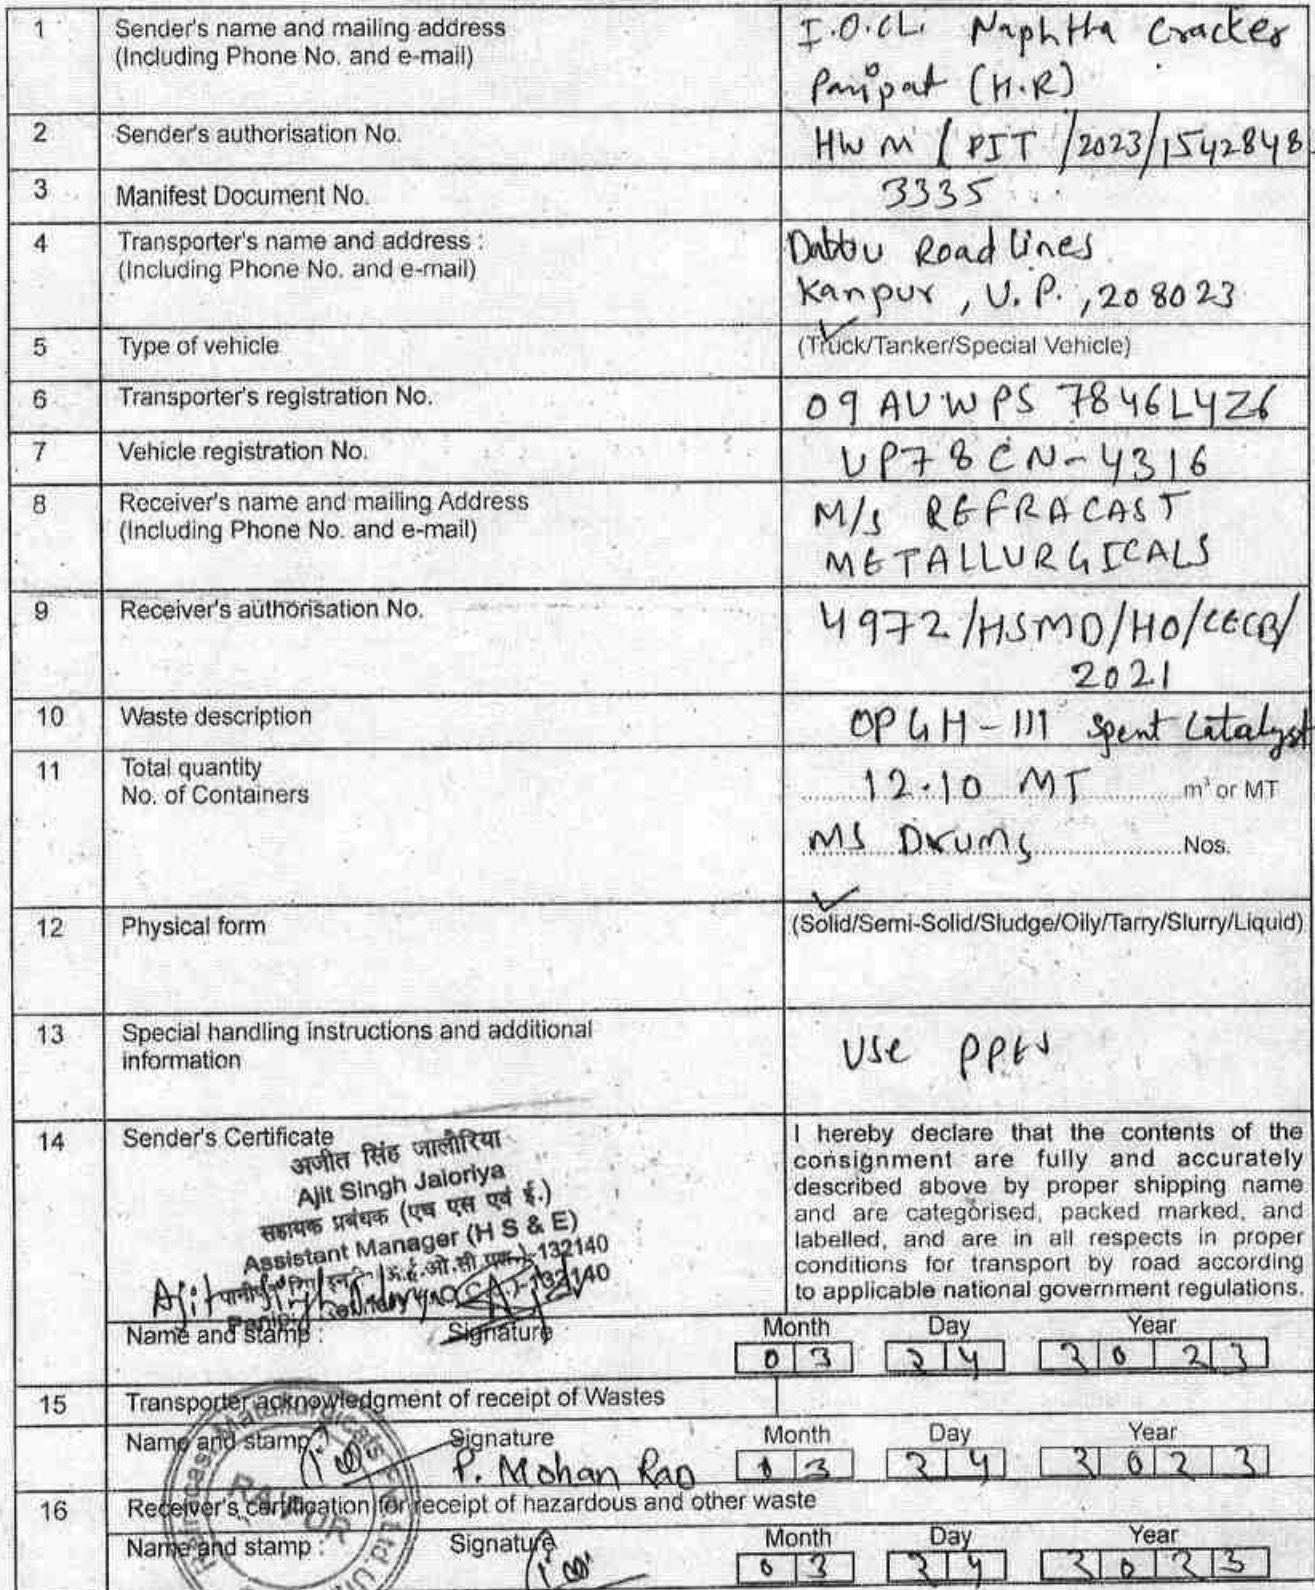 1 Sender's name and mailing address I.O.CL. Naphtha Cracker
(Including Phone No. and e-mail) Panipat (H.R)
2 Sender's authorisation No. HWM/PIT/2023/1542848
3 Manifest Document No. 3335
4 Transporter's name and address : Dabbu Road Lines
(Including Phone No. and e-mail) Kanpur, U.P., 208023
5 Type of vehicle (Truck/Tanker/Special Vehicle)
6 Transporter's registration No. 09 AUWPS 7846L4Z6
7 Vehicle registration No. UP78CN-4316
8 Receiver's name and mailing Address M/s REFRACAST
(Including Phone No. and e-mail) METALLURGICALS
9 Receiver's authorisation No. 4972/HSMD/HO/CECB/
2021
10 Waste description OPGH-III Spent Catalyst
11 Total quantity 12.10 MT m³ or MT
No. of Containers
MS Drums Nos.
12 Physical form (Solid/Semi-Solid/Sludge/Oily/Tarry/Slurry/Liquid)
13 Special handling instructions and additional Use PPEs
information
14 Sender's Certificate
अजीत सिंह जालौरिया
Ajit Singh Jaloriya
सहायक प्रबंधक (एच एस एवं ई.)
Assistant Manager (H S & E)
132140
132140
Ajit Singh
I hereby declare that the contents of the
consignment are fully and accurately
described above by proper shipping name
and are categorised, packed marked, and
labelled, and are in all respects in proper
conditions for transport by road according
to applicable national government regulations.
Name and stamp : Signature Month Day Year
03 24 2023
15 Transporter acknowledgment of receipt of Wastes
Name and stamp Signature Month Day Year
P. Mohan Rao 03 24 2023
16 Receiver's certification for receipt of hazardous and other waste
Name and stamp : Signature Month Day Year
03 24 2023
RAIPUR